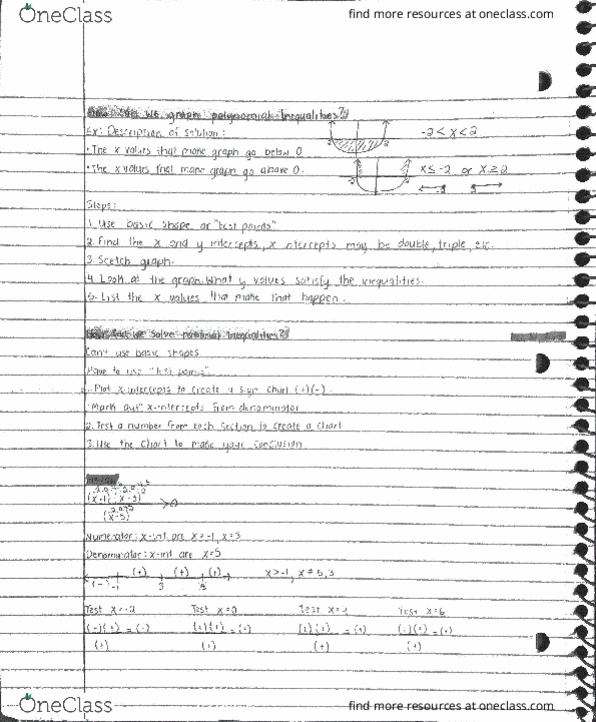 OneClass
find more resources at oneclass.com
we graph polynomial inequalities?
Ex: Description of solution:
•The x values that make graph go below 0
-2 < x < 2
•The x values that make graph go above 0.
x ≤ -2 or x ≥ 2
Steps:
1. Use basic shape or "test points"
2. Find the x and y intercepts, x intercepts may be double, triple, etc.
3. Scetch graph.
4. Look at the graph. What y values satisfy the inequalities.
5. List the x values that make that happen.
we solve rational inequalities?
Can't use basic shapes
Have to use "test points"
1. Plot x-intercepts to create a sign chart (+)(-)
"Mark out" x-intercepts from denominator
2. Test a number from each section to create a chart
3. Use the chart to make your conclusion
>0
Numerator: x-int are x=-1, x=3
Denominator: x-int are x=5
(-) -1 (+) 3 (+) 5 (+)
x>-1, x≠5,3
Test x=-2 Test x=0 Test x=4 Test x=6
(-)(+) = (-) (+)(+) = (+) (+)(+) = (+) (+)(+) = (+)
(+) (+) (+) (+)
OneClass
find more resources at oneclass.com